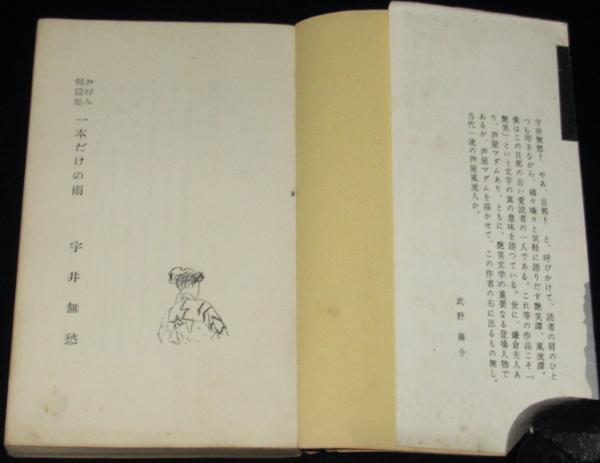 宇井無愁! やあ、旦那! と、呼びかけて、読者の肩のひと
つも叩きながら、縷々喃々と気軽に語りだす艶笑譚、風流譚。
僕はこの旦那の古い愛読者の一人である。これ等の作品こそ『
艶笑』という文字の真の意味を語っている。世に、鎌倉夫人あ
り、芦屋マダムあり、ともに、艶笑文学の重要なる登場人物で
あるが、芦屋マダムを描かせて、この作者の右に出るもの無し。
当代一流の芦屋風流人か。
武野藤介
お好み
一本だけの雨
宇井無愁